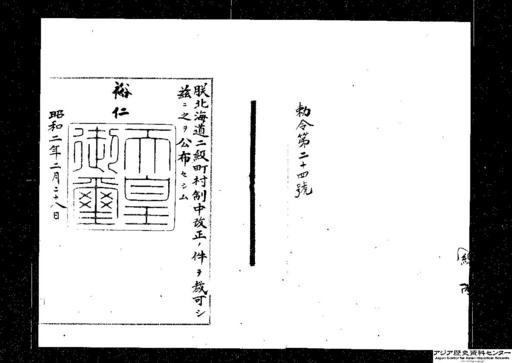 勅令第二十四號
朕北海道二級町村制中改正ノ件ヲ裁可シ
茲ニ之ヲ公布セシム
裕仁
天皇
御璽
昭和二年二月二十八日
アジア歴史資料センター
Japan Center for Asian Historical Records